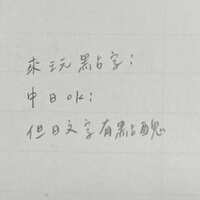 來玩點字：
中日ok；
但日文字有點醜